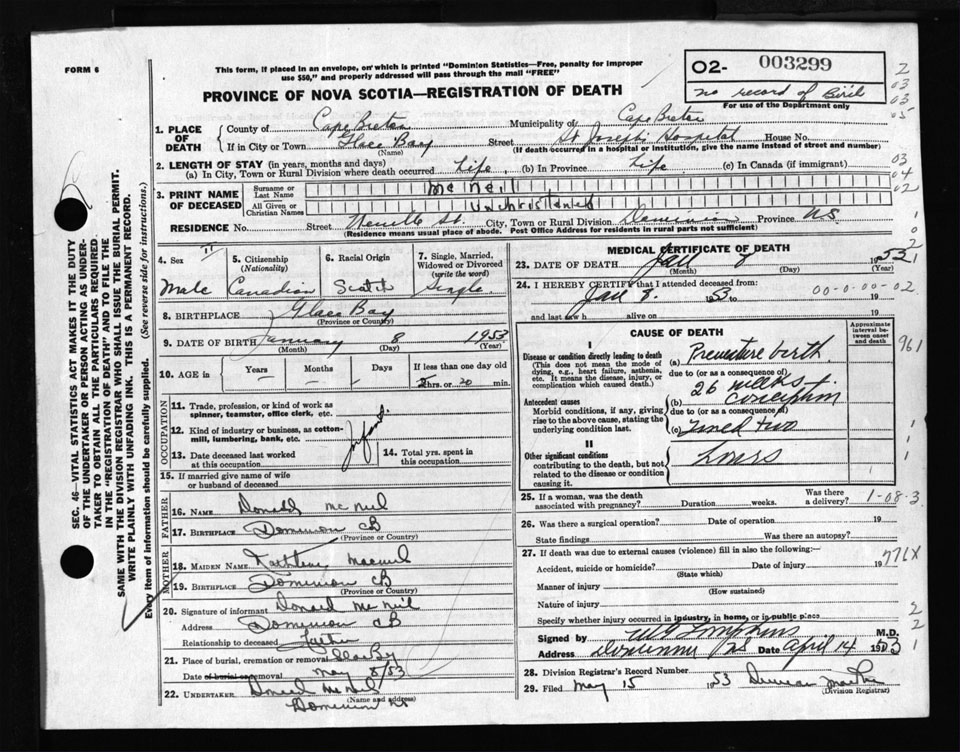 FORM 6
This form, if placed in an envelope, on which is printed "Dominion Statistics—Free, penalty for improper
use $50," and properly addressed will pass through the mail "FREE"
O2- 003299
no record of Birth
For use of the Department only
PROVINCE OF NOVA SCOTIA—REGISTRATION OF DEATH
1. PLACE OF DEATH
County of Cape Breton Municipality of Cape Breton
If in City or Town Glace Bay Street St Joseph's Hospital House No.
(Name) (If death occurred in a hospital or institution, give the name instead of street and number)
2. LENGTH OF STAY (in years, months and days)
(a) In City, Town or Rural Division where death occurred Life, (b) In Province Life, (c) In Canada (if immigrant)
3. PRINT NAME OF DECEASED
Surname or Last Name McNeil
All Given or Christian Names Unchristened
RESIDENCE No. Street St. City, Town or Rural Division Dominion Province NS
(Residence means usual place of abode. Post Office Address for residents in rural parts not sufficient)
4. Sex
Male
5. Citizenship (Nationality)
Canadian
6. Racial Origin
Scotch
7. Single, Married, Widowed or Divorced (write the word)
Single
8. BIRTHPLACE Glace Bay
(Province or Country)
9. DATE OF BIRTH January 8 1953
(Month) (Day) (Year)
10. AGE in Years Months Days If less than one day old
hrs. or 20 min.
OCCUPATION
11. Trade, profession, or kind of work as
spinner, teamster, office clerk, etc.
12. Kind of industry or business, as cotton-
mill, lumbering, bank, etc.
Infant
13. Date deceased last worked
at this occupation
14. Total yrs. spent in
this occupation
15. If married give name of wife
or husband of deceased
FATHER
16. Name Donald McNeil
17. Birthplace Dominion CB
(Province or Country)
MOTHER
18. MAIDEN NAME Kathleen
19. BIRTHPLACE Dominion CB
(Province or Country)
20. Signature of informant Donald McNeil
Address Dominion CB
Relationship to deceased Father
21. Place of burial, cremation or removal Glace Bay
Date of burial or removal May 8/53
22. UNDERTAKER Donald McNeil
(Name and address)
Dominion
MEDICAL CERTIFICATE OF DEATH
23. DATE OF DEATH Jan 8 1953
(Month) (Day) (Year)
24. I HEREBY CERTIFY that I attended deceased from:
Jan 8. 1953 to 19
00-0-00-02
and last saw h alive on 19
CAUSE OF DEATH
Approximate interval between onset and death
I
Disease or condition directly leading to death
(This does not mean the mode of
dying, e.g., heart failure, asthenia,
etc. It means the disease, injury, or
complication which caused death.)
(a) Premature birth
due to (or as a consequence of)
26 weeks
Antecedent causes
Morbid conditions, if any, giving
rise to the above cause, stating the
underlying condition last.
(b) conception
due to (or as a consequence of)
(c) Lived two
II
Other significant conditions
contributing to the death, but not
related to the disease or condition
causing it.
hours
961
25. If a woman, was the death
associated with pregnancy? Duration weeks. Was there a delivery?
1-08-3
26. Was there a surgical operation? Date of operation 19
State findings Was there an autopsy?
27. If death was due to external causes (violence) fill in also the following:—
Accident, suicide or homicide? Date of injury 19
(State which)
776X
Manner of injury
(How sustained)
Nature of injury
Specify whether injury occurred in industry, in home, or in public place
Signed by M.D.
Address Dominion NS Date April 14 1953
28. Division Registrar's Record Number
29. Filed May 15 1953 Duncan
(Division Registrar)
SEC. 46—VITAL STATISTICS ACT MAKES IT THE DUTY
OF THE UNDERTAKER OR PERSON ACTING AS UNDER-
TAKER TO OBTAIN ALL THE PARTICULARS REQUIRED
IN THE "REGISTRATION OF DEATH" AND TO FILE THE
SAME WITH THE DIVISION REGISTRAR WHO SHALL ISSUE THE BURIAL PERMIT.
WRITE PLAINLY WITH UNFADING INK. THIS IS A PERMANENT RECORD.
Every item of information should be carefully supplied. (See reverse side for instructions.)